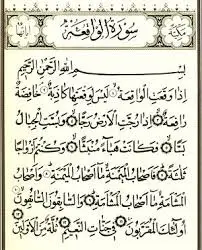 سُورَةُ الْوَاقِعَة
بِسْمِ اللَّهِ الرَّحْمَنِ الرَّحِيمِ
إِذَا وَقَعَتِ الْوَاقِعَةُ لَيْسَ لِوَقْعَتِهَا كَاذِبَةٌ خَافِضَةٌ
رَافِعَةٌ إِذَا رُجَّتِ الْأَرْضُ رَجًّا وَبُسَّتِ الْجِبَالُ
بَسًّا فَكَانَتْ هَبَاءً مُنْبَثًّا وَكُنْتُمْ أَزْوَاجًا
ثَلَاثَةً فَأَصْحَابُ الْمَيْمَنَةِ مَا أَصْحَابُ الْمَيْمَنَةِ وَأَصْحَابُ
الْمَشْأَمَةِ مَا أَصْحَابُ الْمَشْأَمَةِ وَالسَّابِقُونَ السَّابِقُونَ
أُولَئِكَ الْمُقَرَّبُونَ فِي جَنَّاتِ النَّعِيمِ ثُلَّةٌ مِنَ الْأَوَّلِينَ